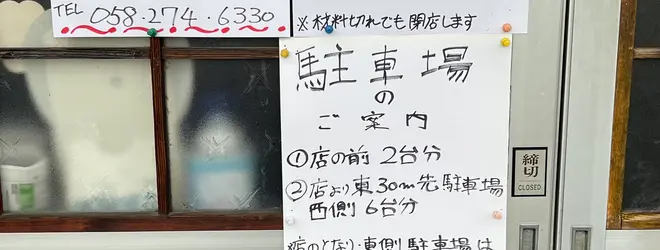 TEL 058・274・6330
※材料切れでも閉店します
駐車場
の
ご案内
①店の前 2台分
②店より東30m先駐車場
西側6台分
店のとなり・東側駐車場は
締切
CLOSED